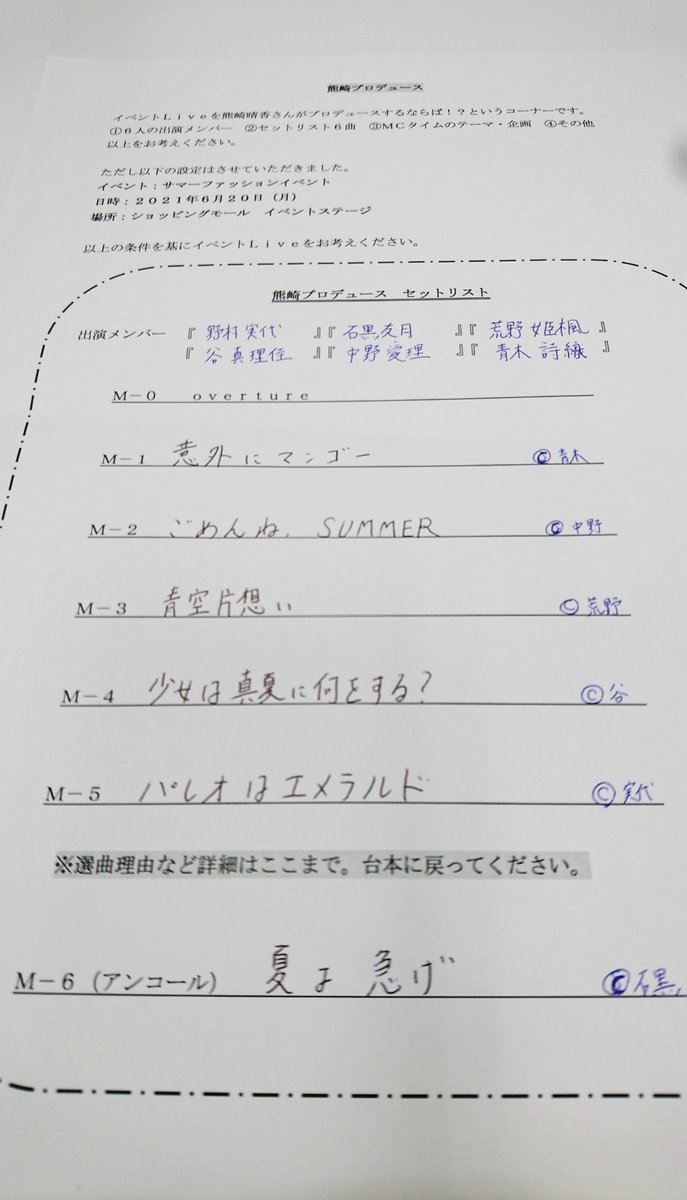 熊崎プロデュース
イベントＬｉｖｅを熊崎晴香さんがプロデュースするならば！？というコーナーです。
①６人の出演メンバー　②セットリスト６曲　③ＭＣタイムのテーマ・企画　④その他
以上をお考えください。
ただし以下の設定はさせていただきました。
イベント：サマーファッションイベント
日時：２０２１年６月２０日（月）
場所：ショッピングモール　イベントステージ
以上の条件を基にイベントＬｉｖｅをお考えください。
熊崎プロデュース　セットリスト
出演メンバー　『 野村実代 』『 石黒友月 』『 荒野 姫楓 』
『 谷 真理佳 』『 中野愛理 』『 青木 詩織 』
Ｍ－０　ｏｖｅｒｔｕｒｅ
Ｍ－１　意外にマンゴー　Ⓒ 青木
Ｍ－２　ごめんね、SUMMER　Ⓒ 中野
Ｍ－３　青空片想い　Ⓒ 荒野
Ｍ－４　少女は真夏に何をする？　Ⓒ 谷
Ｍ－５　パレオはエメラルド　Ⓒ 実代
※選曲理由など詳細はここまで。台本に戻ってください。
Ｍ－６（アンコール）　夏よ 急げ　Ⓒ 石黒